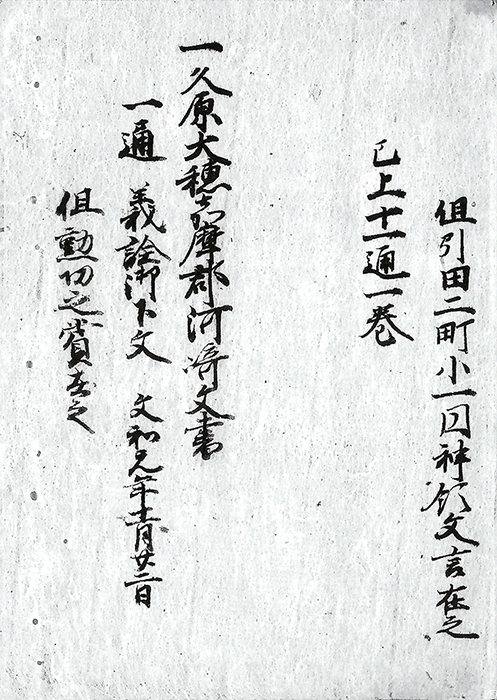 但引田二町小一円神領文言在之
已上十一通一巻
一久原大穂志摩郡河崎文書
一通 義詮御下文 文和元年十一月廿二日
但勲功之賞在之